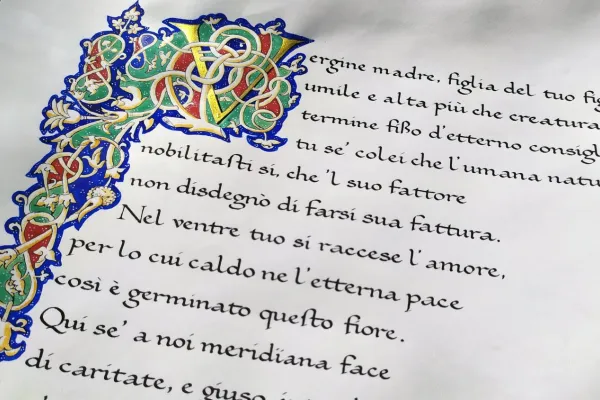 Vergine madre, figlia del tuo
umile e alta più che creatura
termine fisso d'etterno
tu se' colei che l'umana
nobilitasti sì, che 'l suo fattore
non disdegnò di farsi sua fattura.
Nel ventre tuo si raccese l'amore,
per lo cui caldo ne l'etterna pace
così è germinato questo fiore.
Qui se' a noi meridiana face
di caritate, e giuso